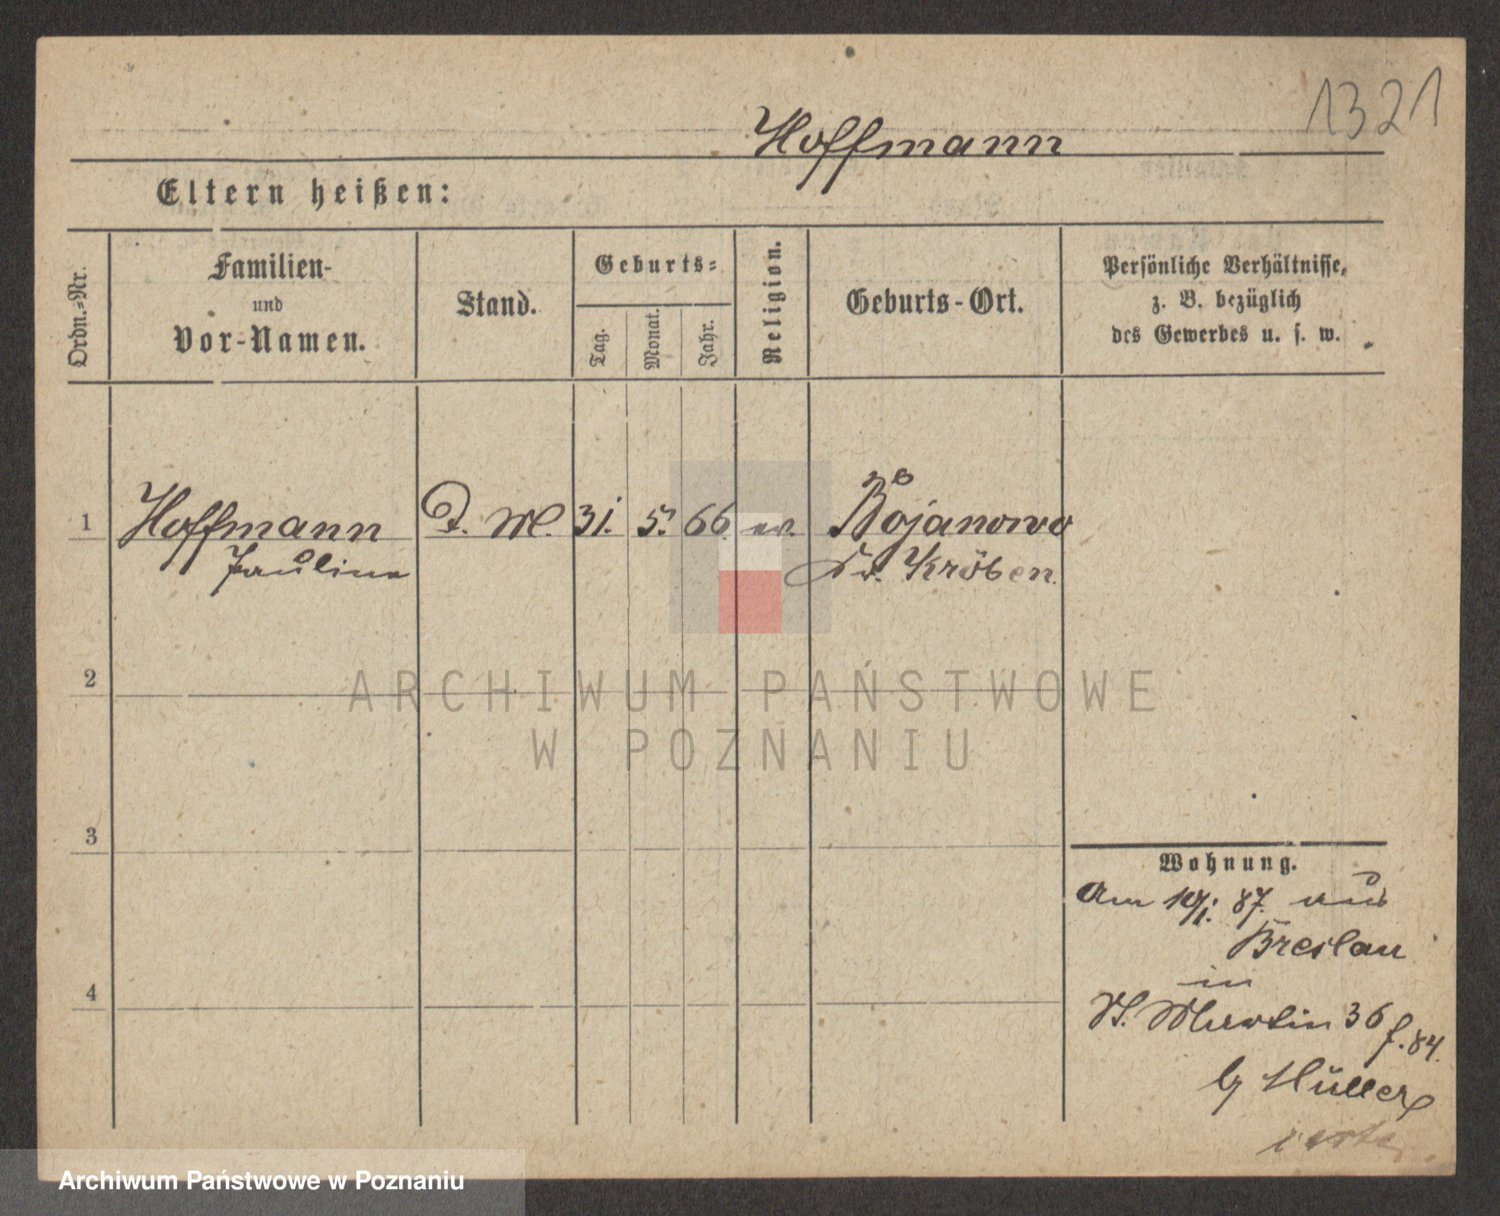 1321
Hoffmann
Eltern heißen:
Ordn.-Nr.
Familien-
und
Vor-Namen.
Stand.
Geburts-
Tag.
Monat.
Jahr.
Religion.
Geburts-Ort.
Persönliche Verhältnisse,
z. B. bezüglich
des Gewerbes u. s. w.
1 Hoffmann D. M. 31. 5. 66. ev. Bojanowo
Pauline Kr. Kröben.
2
ARCHIWUM PAŃSTWOWE
W POZNANIU
3
Wohnung.
Am 10/1. 87. aus
Breslau
in
4
St. Martin 36
f. 84.
by Müller
Archiwum Państwowe w Poznaniu